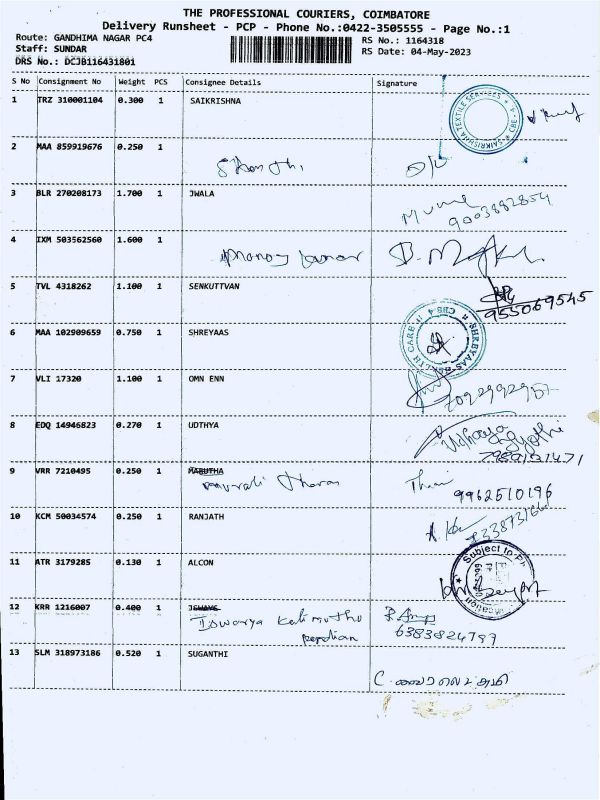 THE PROFESSIONAL COURIERS, COIMBATORE
Delivery Runsheet - PCP - Phone No.:0422-3505555 - Page No.:1
Route: GANDHIMA NAGAR PC4
RS No.: 1164318
Staff: SUNDAR
RS Date: 04-May-2023
DRS No.: DCJB116431801
S No Consignment No Weight PCS Consignee Details Signature
1 TRZ 310001104 0.300 1 SAIKRISHNA
SAIKRISHNA TEXTILE SERVICES
2 MAA 859919676 0.250 1
3 BLR 270208173 1.700 1 JWALA
9003882854
4 IXM 503562560 1.600 1
5 TVL 4318262 1.100 1 SENKUTTVAN
955069545
6 MAA 102909659 0.750 1 SHREYAAS
SHREYAAS HEALTH CARE CBE-4
7 VLI 17320 1.100 1 OMN ENN
8 EDQ 14946823 0.270 1 UDTHYA
Udhaya
9 VRR 7210495 0.250 1 MARUTHA
9962510196
10 KCM 50034574 0.250 1 RANJATH
11 ATR 3179285 0.130 1 ALCON
Subject to
12 KRR 1216007 0.400 1
Iswarya Kalimuthu
pandian
6383824799
13 SLM 318973186 0.520 1 SUGANTHI